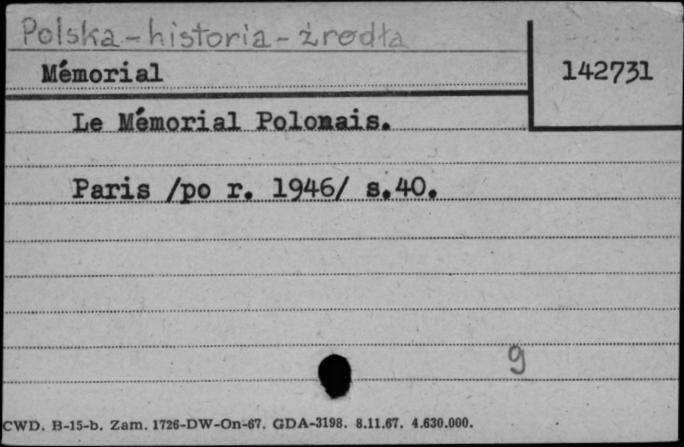 Polska - historia - źrodła
Mémorial
142731
Le Mémorial Polonais.
Paris /po r. 1946/ s.40.
9
CWD. B-15-b. Zam. 1726-DW-On-67. GDA-3198. 8.11.67. 4.630.000.